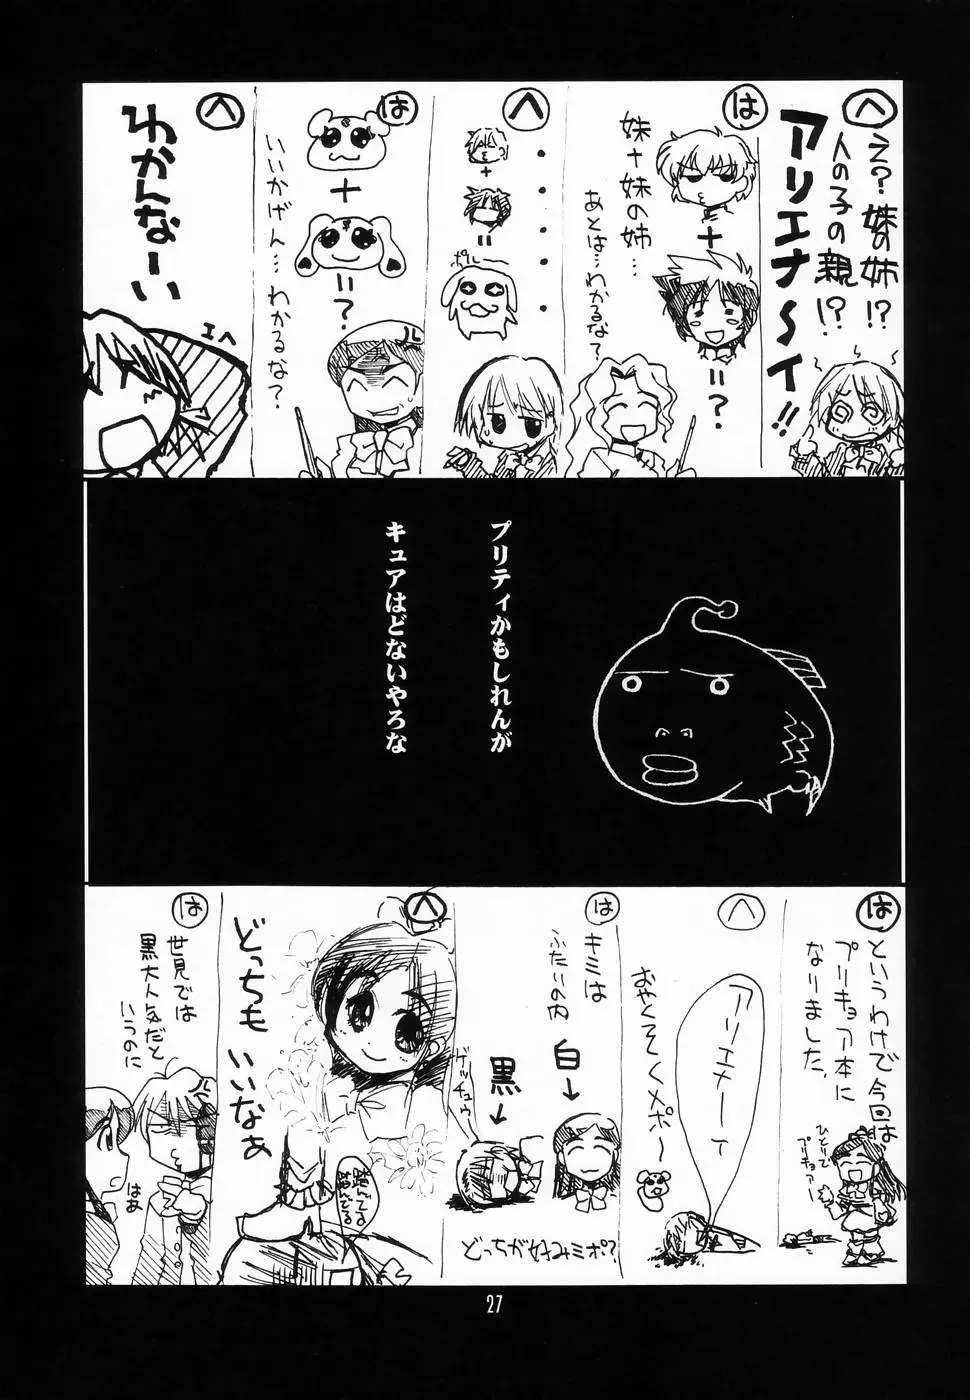 へ
え?妹の姉!?
人の子の親!?
アリエナ〜イ!!
は
妹+妹の姉…
あとは…わかるな?
+
=?
へ
・・・・・
+
=
ポルー
は
+
=?
いいかげん…わかるな?
へ
わかんなーい
エヘ
プリティかもしれんが
キュアはどないやろな
は
というわけで今回は
プリキュア本に
なりました。
ひとりで
プリキュアー
へ
アリエナーイ
おやくそくメポ〜
は
キミは
ふたりの内
白→
黒→
ゲッチュウ
どっちが好みミポ?
へ
どっちも
いいなぁ
踏んでる
踏んでる
は
世見では
黒大人気だと
いうのに
はぁ
27